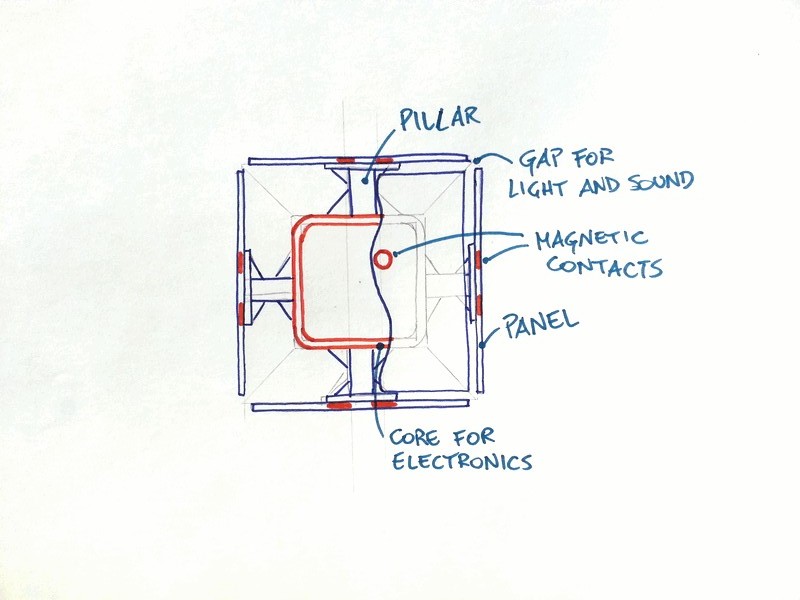 PILLAR
GAP FOR
LIGHT AND SOUND
MAGNETIC
CONTACTS
PANEL
CORE FOR
ELECTRONICS